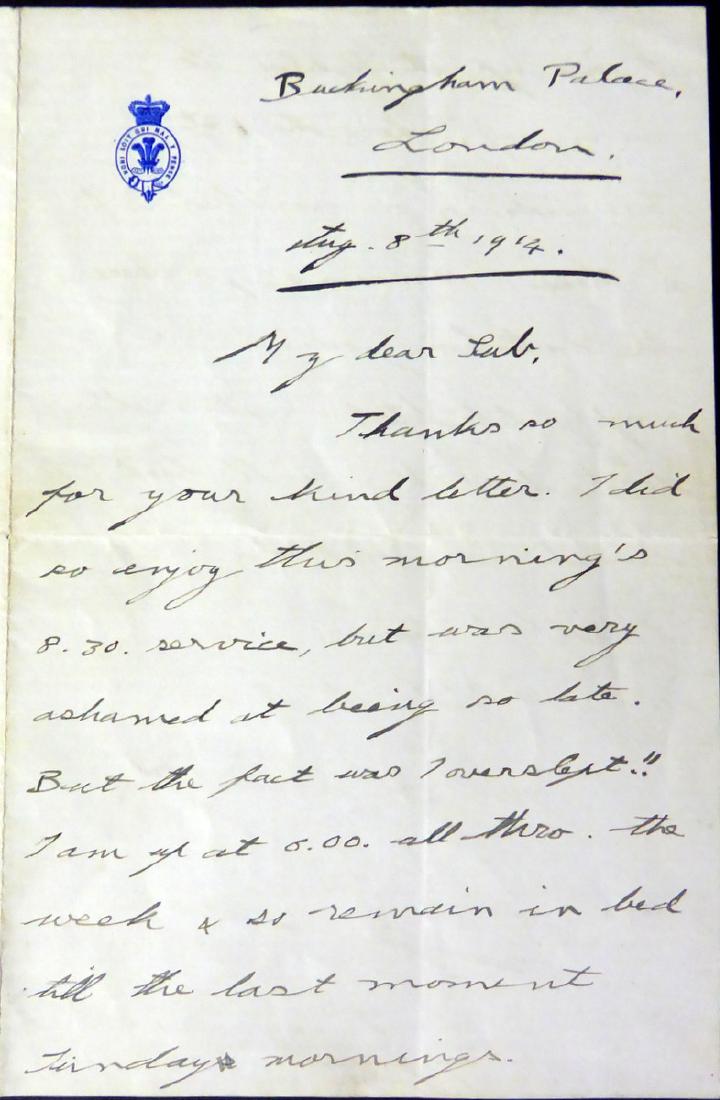 HONI SOIT QUI MAL Y PENSE
Buckingham Palace,
London.
Aug. 8th 1914.
My dear Sub,
Thanks so much
for your kind letter. I did
so enjoy this morning's
8.30. service, but was very
ashamed at being so late.
But the fact was I overslept!!
I am up at 6.00. all thro. the
week & so remain in bed
till the last moment
Sunday mornings.